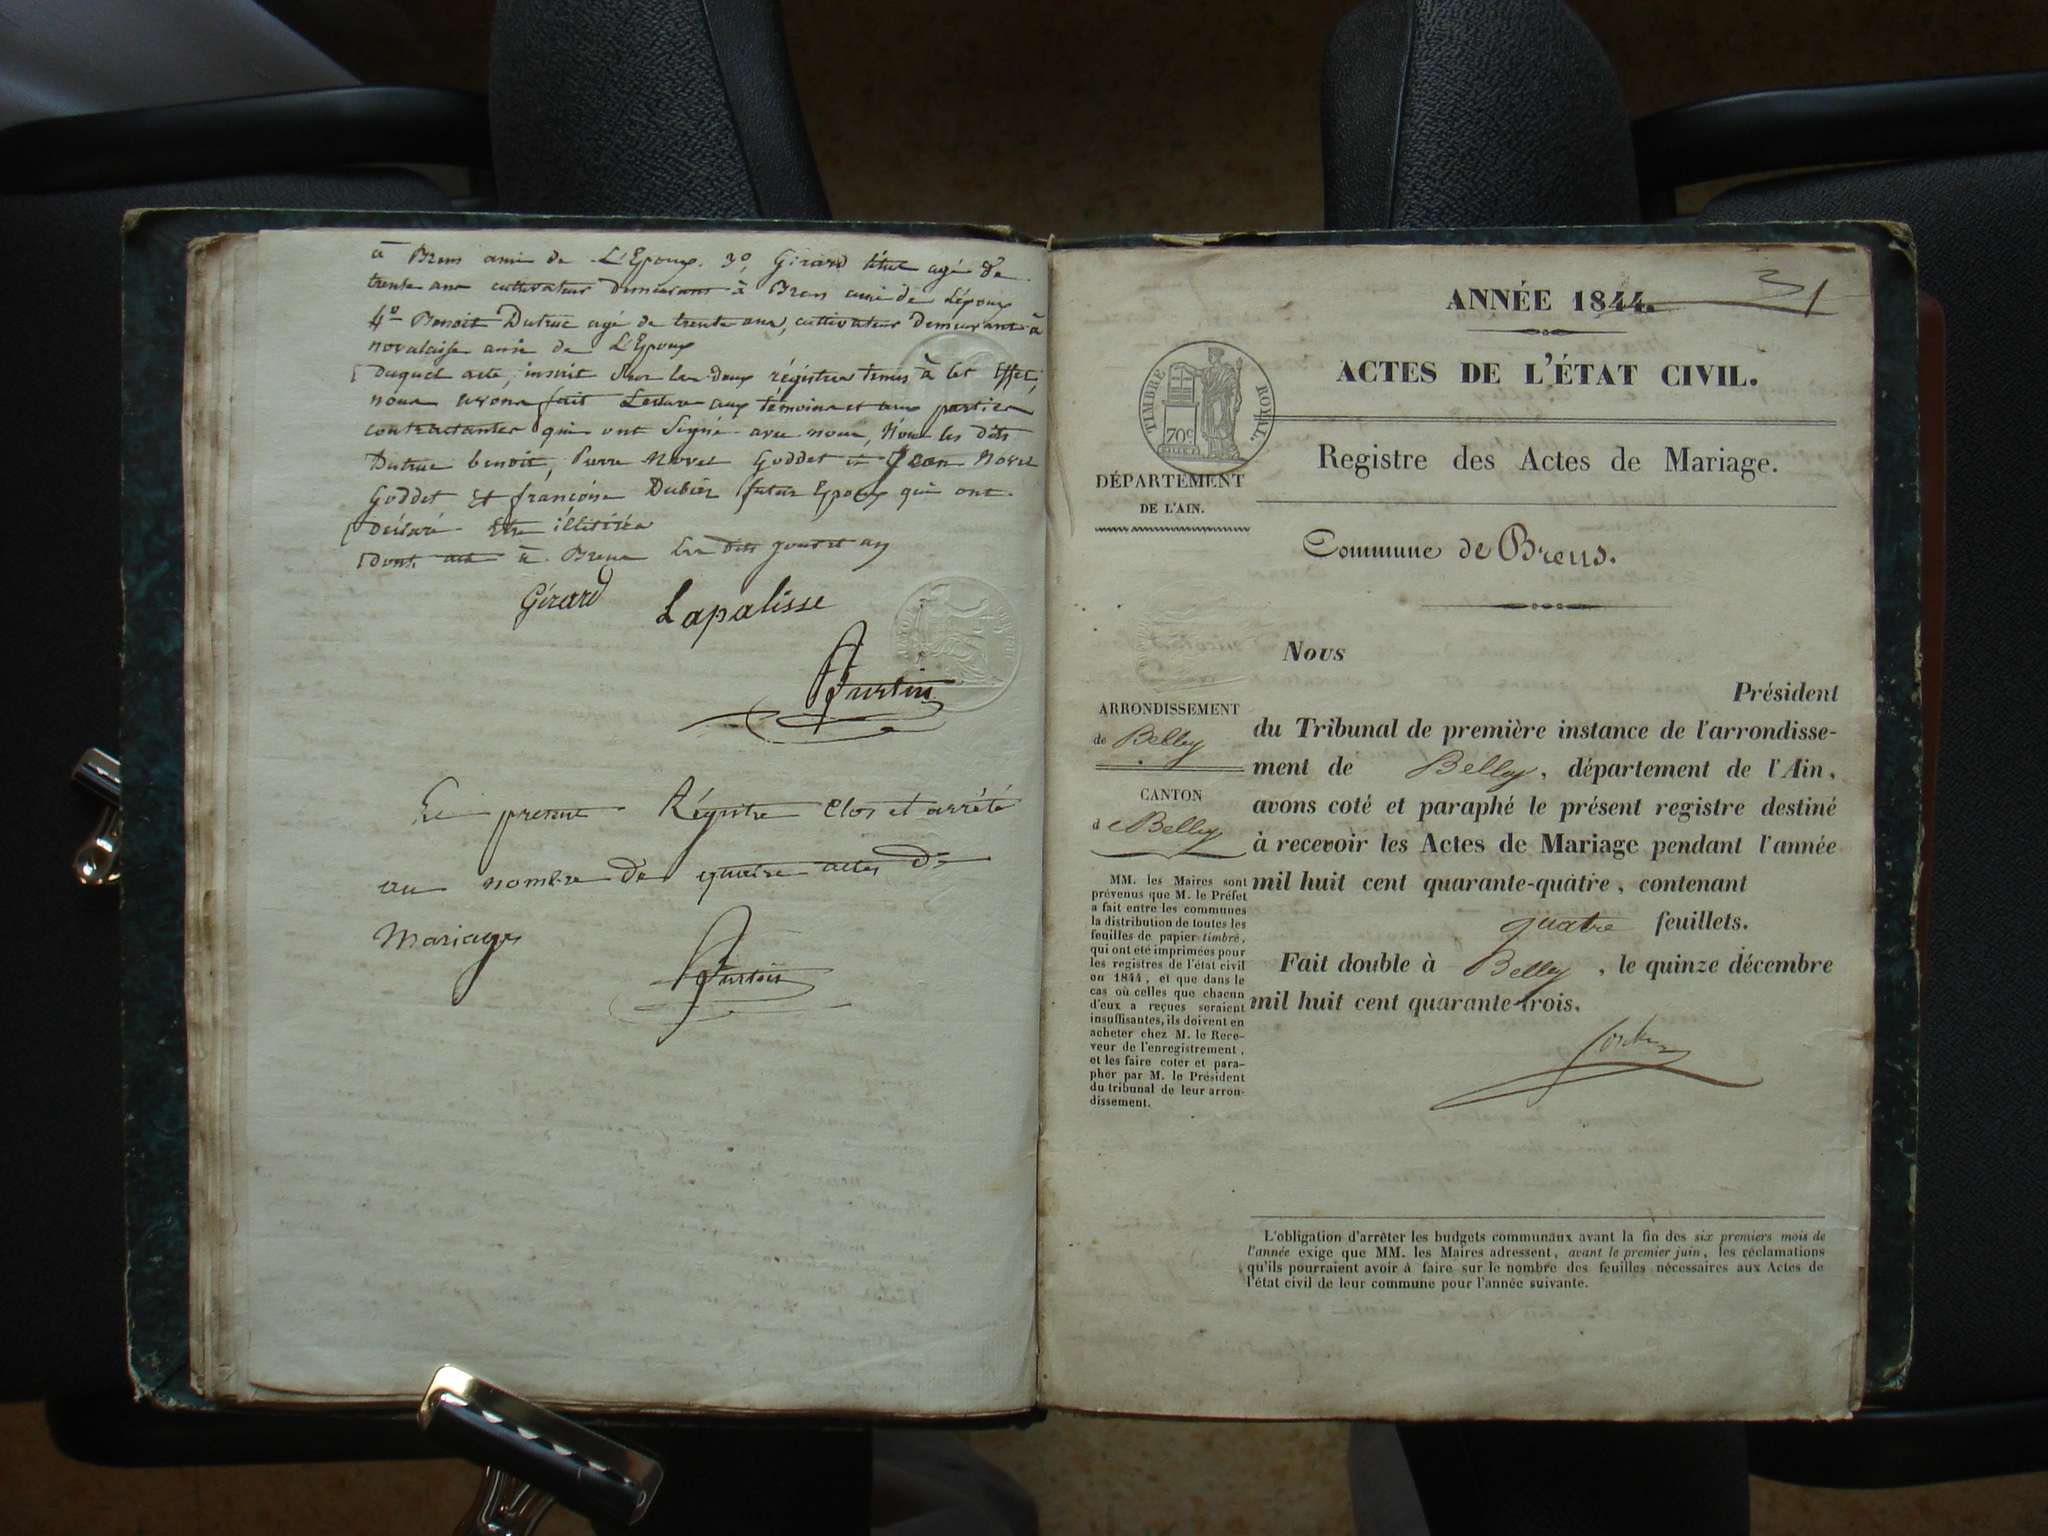 à Brens ami de L'Epoux. 3º, Girard titus agé de
trente ans cultivateur demeurant à Brens ami de Lépoux
4º Benoit Dutruc agé de trente ans, cultivateur demeurant à
novalaise ami de L'Epoux
duquel acte, inscrit sur les deux régistres tenus à cet Effet,
nous avons fait Lecture aux témoins et aux parties
contractantes qui ont Signé avec nous, Non les dits
Dutruc benoit, Pierre Novel Goddet et Jean Novel
Goddet et françoise Dubier futur Epoux qui ont
déclaré Etre illitirés
dont acte à Brens les dits jour et an
Girard
Lapalisse
Le present Régistre Clos et arrêté
au nombre de quatre actes de
Mariages
31
ANNÉE 1844.
ACTES DE L'ÉTAT CIVIL.
TIMBRE ROYAL.
70c
Registre des Actes de Mariage.
DÉPARTEMENT
DE L'AIN.
Commune de Brens.
Nous
Président
ARRONDISSEMENT
de Belley
CANTON
de Belley
du Tribunal de première instance de l'arrondisse-
ment de Belley, département de l'Ain,
avons coté et paraphé le présent registre destiné
à recevoir les Actes de Mariage pendant l'année
mil huit cent quarante-quatre, contenant
quatre feuillets.
Fait double à Belley, le quinze décembre
mil huit cent quarante-trois.
MM. les Maires sont
prévenus que M. le Préfet
a fait entre les communes
la distribution de toutes les
feuilles de papier timbré,
qui ont été imprimées pour
les registres de l'état civil
en 1844, et que dans le
cas où celles que chacun
d'eux a reçues seraient
insuffisantes, ils doivent en
acheter chez M. le Rece-
veur de l'enregistrement,
et les faire coter et para-
pher par M. le Président
du tribunal de leur arron-
dissement.
L'obligation d'arrêter les budgets communaux avant la fin des six premiers mois de
l'année exige que MM. les Maires adressent, avant le premier juin, les réclamations
qu'ils pourraient avoir à faire sur le nombre des feuilles nécessaires aux Actes de
l'état civil de leur commune pour l'année suivante.